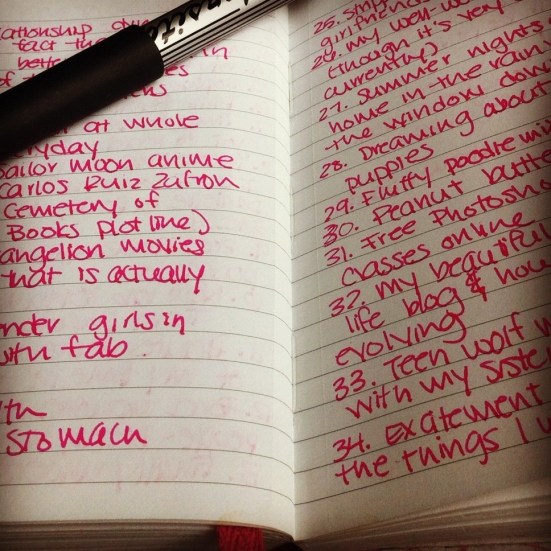 fact
in
of
at whole
yday
Sailor moon anime
Carlos Ruiz Zafron
Cemetery of
Books plot line)
angelion movies
that is actually
nder girls in
with fab.
th
stomach
25.
girlfriend
26. my well-w
(though it's very
currently)
27. summer nights
home in the rain
the window dow
28. Dreaming about
puppies
29. Fluffy poodle mi
30. Peanut butte
31. Free Photosho
classes online
32. my beautiful
life blog & how
evolving
33. Teen wolf w
with my siste
34. Excitement
the things I w